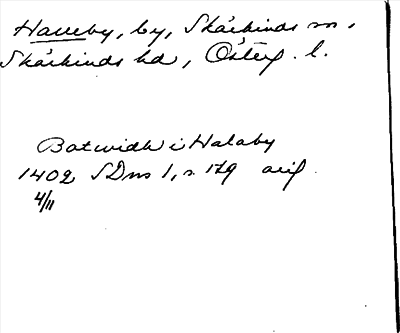 Haueby, by, Skärkinds sn,
Skärkinds hd, Österg. l.
Botwidh i Halaby
1402 SDns 1, s. 179 avs.
4/11